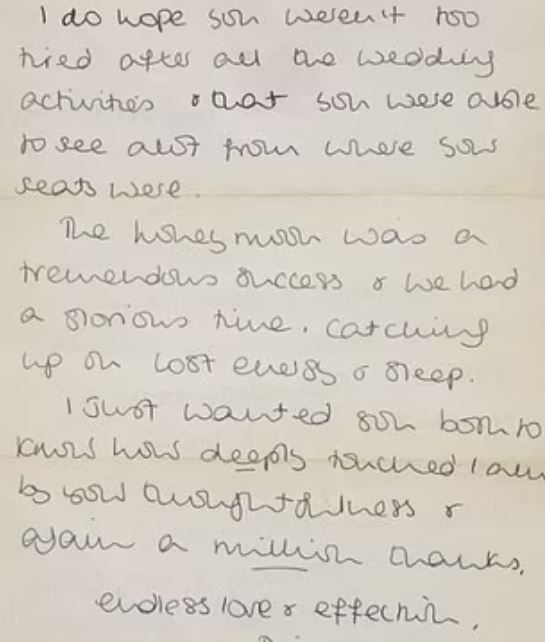 I do hope you weren't too
tired after all the wedding
activities & that you were able
to see alot from where your
seats were.
The honeymoon was a
tremendous success & we had
a glorious time, catching
up on lost energy & sleep.
I just wanted you both to
know how deeply touched I am
by your thoughtfulness &
again a million thanks,
endless love & affection,